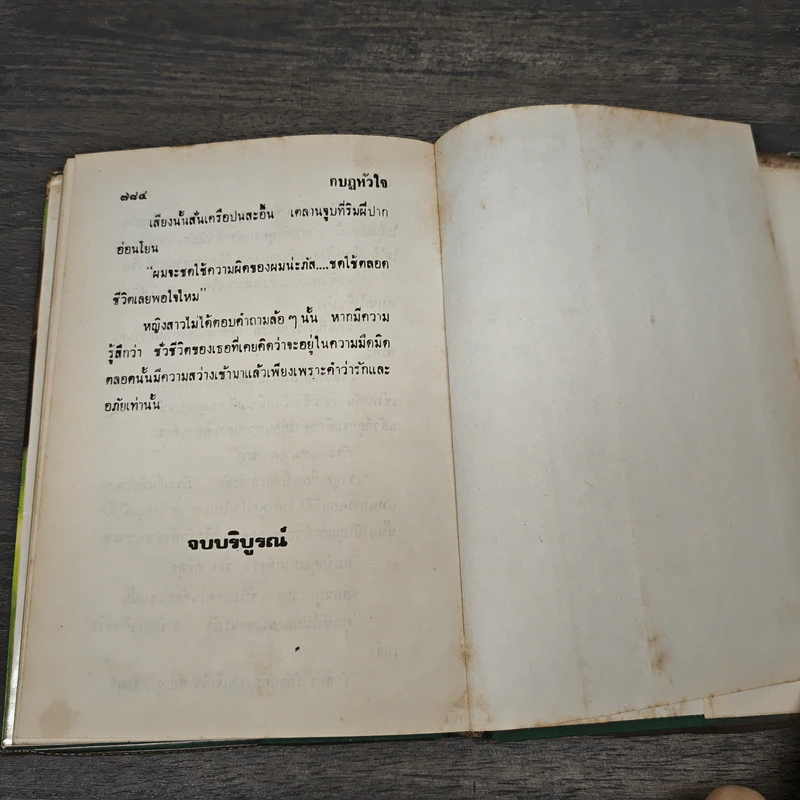 ๗๘๔ กบฏหัวใจ
เสียงนั้นสั่นเครือปนสะอื้น เคลานจูบที่ริมฝีปาก
อ่อนโยน
"ผมจะชดใช้ความผิดของผมน่ะภัส....ชดใช้ตลอด
ชีวิตเลยพอใจไหม"
หญิงสาวไม่ได้ตอบคำถามล้อ ๆ นั้น หากมีความ
รู้สึกว่า ชั่วชีวิตของเธอที่เคยคิดว่าจะอยู่ในความมืดมิด
ตลอดนั้นมีความสว่างเข้ามาแล้วเพียงเพราะคำว่ารักและ
อภัยเท่านั้น
จบบริบูรณ์